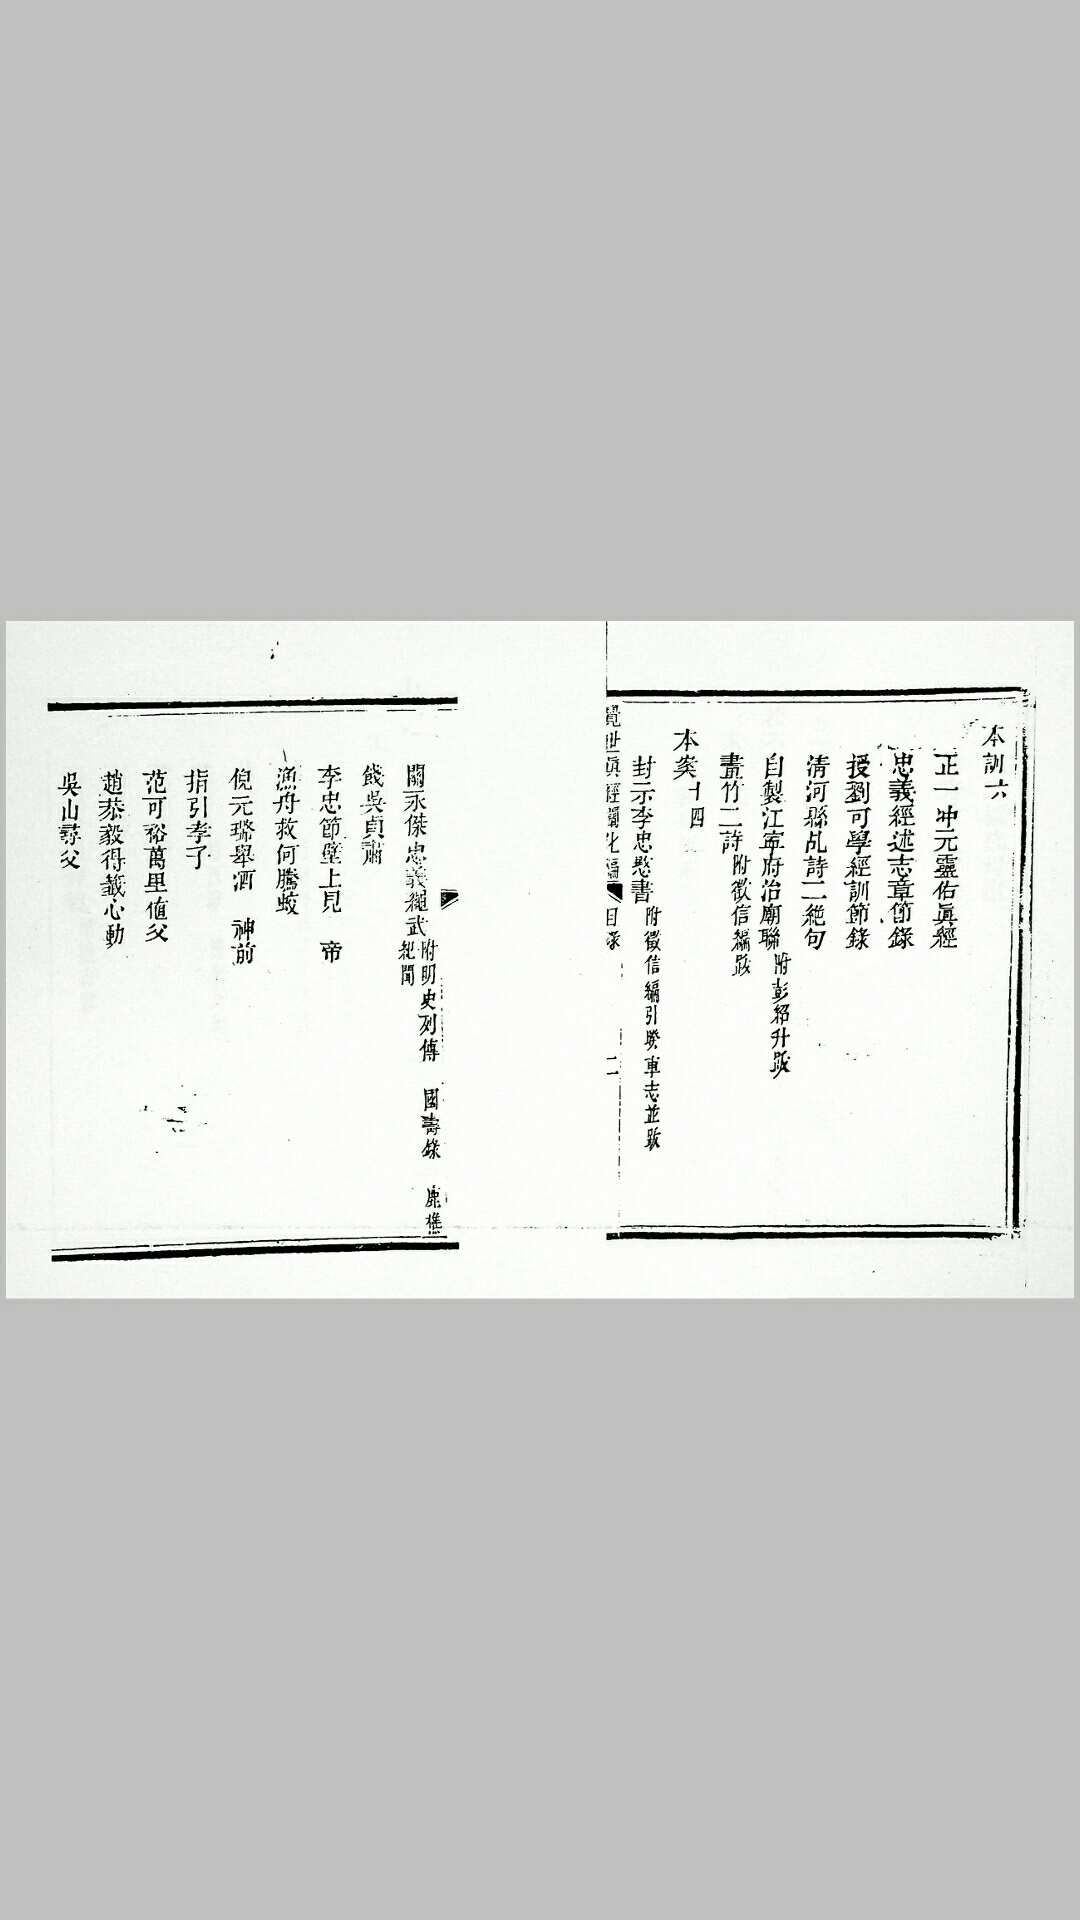 本訓六
正一冲元靈佑眞經
忠義經述志章節錄
授劉可學經訓節錄
淸河縣乩詩二絕句
自製江寧府治廟聯附彭紹升跋
畫竹二詩附徵信編跋
本案十四
封示李忠愍書附徵信編引睽車志並跋
覺世眞經闡化編 目錄 二
關永傑忠義繩武附明史列傳 國壽錄 鹿樵紀聞
餞吳貞肅
李忠節壁上見 帝
漁舟救何騰蛟
倪元璐舉酒 神前
指引孝子
范可裕萬里値父
趙恭毅得籤心動
吳山尋父